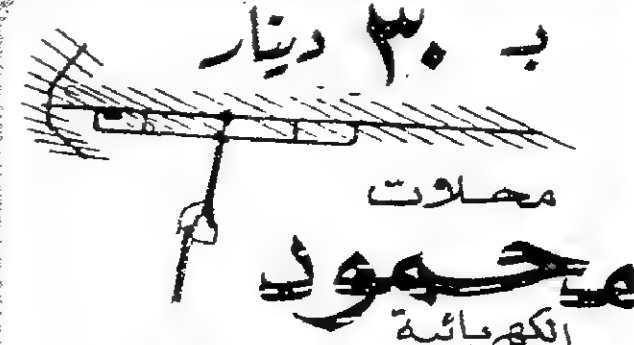 بـ ٣٠ دينار
محلات
محمود
الكهربائية